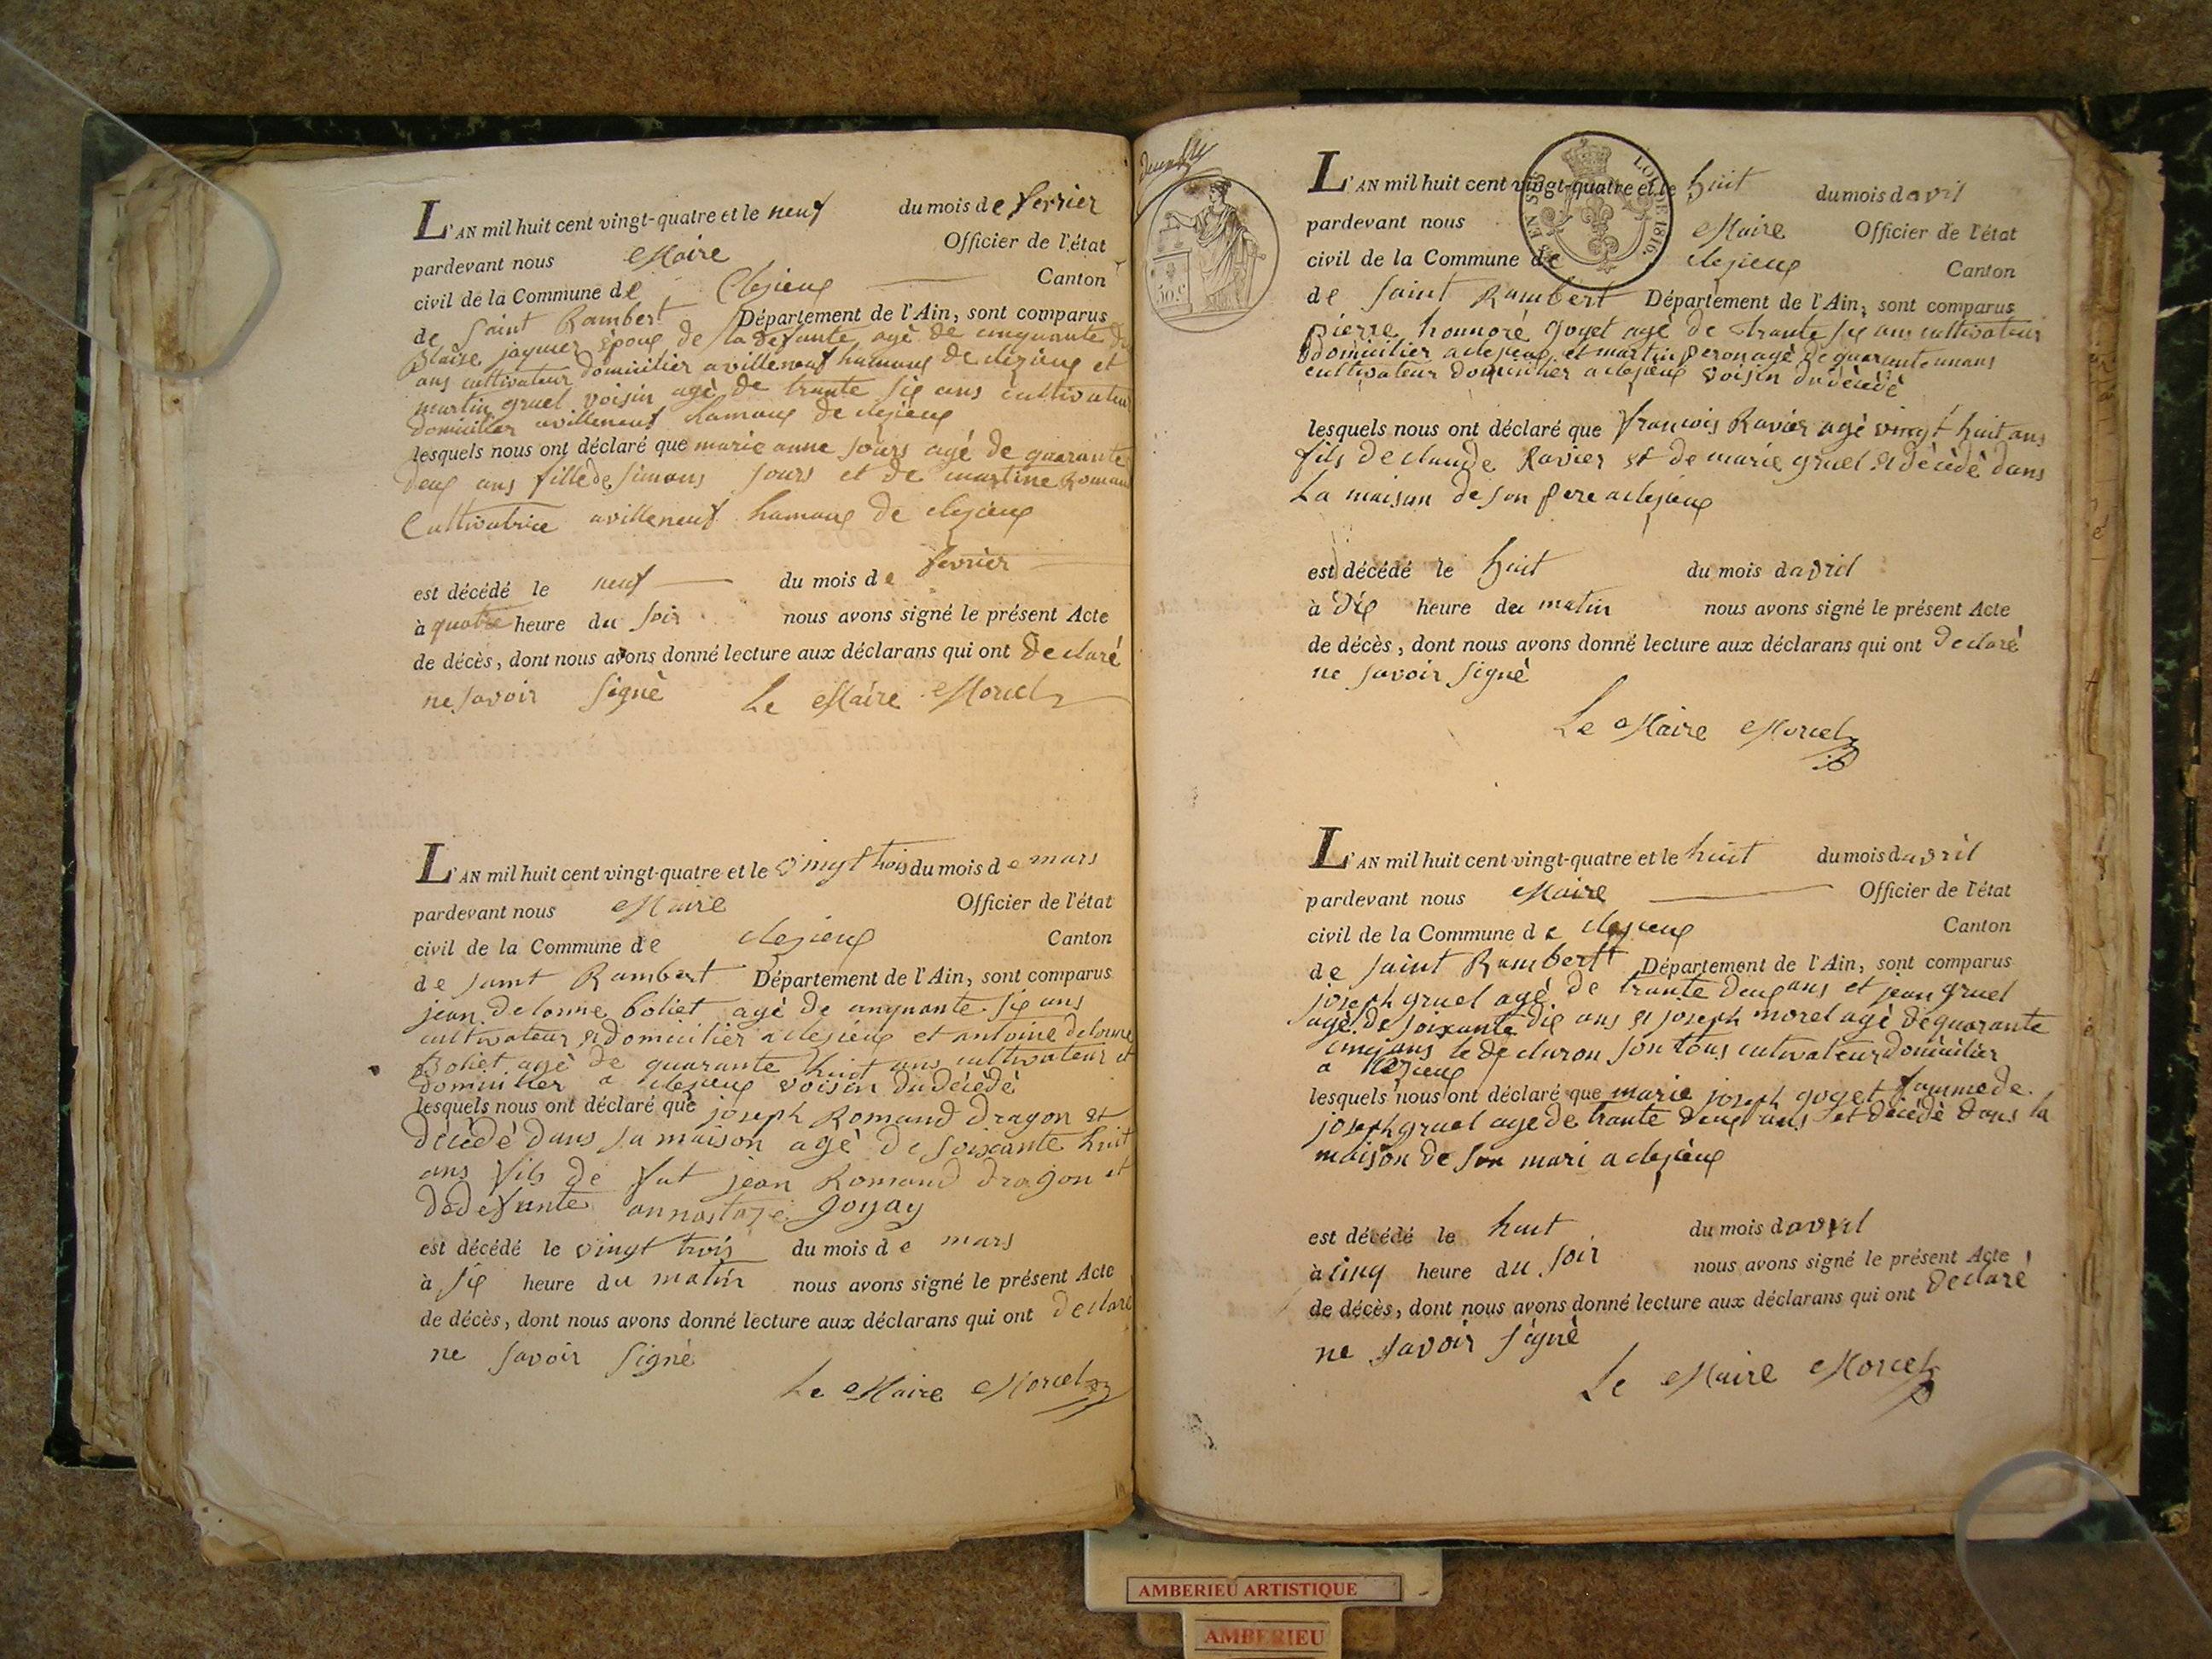 L'AN mil huit cent vingt-quatre et le neuf du mois de fevrier
pardevant nous Maire Officier de l'état
civil de la Commune de Clezieux Canton
de Saint Rambert Département de l'Ain, sont comparus
Blaise joyuer époux de la defunte agé de cinquante
ans cultivateur domicilier a villeneuf hamaux de clezieux et
martin gruel voisin agé de trante six ans cultivateur
domicilier a villeneuf hamaux de clezieux
lesquels nous ont déclaré que marie anne jours agé de quarante
deux ans fille de simons jours et de martine Roman
Cultivatrice a villeneuf hamaux de clezieux
est décédé le neuf du mois de fevrier
à quatre heure du soir nous avons signé le présent Acte
de décès, dont nous avons donné lecture aux déclarans qui ont declaré
ne savoir signé Le Maire Morcel
L'AN mil huit cent vingt-quatre et le vingt trois du mois de mars
pardevant nous Maire Officier de l'état
civil de la Commune de clezieux Canton
de saint Rambert Département de l'Ain, sont comparus
jean delorme boliet agé de cinquante six ans
cultivateur et domicilier a clezieux et antoine delorme
Boliet agé de quarante huit ans cultivateur et
domicilier a clezieux voisin du décédé
lesquels nous ont déclaré que joseph Romand dragon et
décédé dans sa maison agé de soixante huit
ans fils de fut jean Romand dragon et
de defunte annastazie Joyay
est décédé le vingt trois du mois de mars
à six heure du matin nous avons signé le présent Acte
de décès, dont nous avons donné lecture aux déclarans qui ont declaré
ne savoir signé
Le Maire Morcel
50 c
EN SUS LOI DE 1816
L'AN mil huit cent vingt-quatre et le huit du mois d avril
pardevant nous Maire Officier de l'état
civil de la Commune de clezieux Canton
de saint Rambert Département de l'Ain, sont comparus
pierre honnoré goyet agé de trante six ans cultivateur
domicilier a clezieux et martin peron agé de quarante un ans
cultivateur domicilier a clezieux voisin du décédé
lesquels nous ont déclaré que francois Ravier agé vingt huit ans
fils de claude Ravier et de marie gruel et décédé dans
La maison de son pere a clezieux
est décédé le huit du mois d avril
à dix heure du matin nous avons signé le présent Acte
de décès, dont nous avons donné lecture aux déclarans qui ont declaré
ne savoir signé
Le Maire Morcel
L'AN mil huit cent vingt-quatre et le huit du mois d avril
pardevant nous Maire Officier de l'état
civil de la Commune de clezieux Canton
de saint Rambert Département de l'Ain, sont comparus
joseph gruel agé de trante deux ans et jean gruel
agé de soixante dix ans et joseph morel agé de quarante
cinq ans le declaron son tous cultivateur domicilier
a clezieux
lesquels nous ont déclaré que marie joseph goyet fammede
joseph gruel age de trante deux ans et décédé dans la
maison de son mari a clezieux
est décédé le huit du mois d avril
à cinq heure du soir nous avons signé le présent Acte
de décès, dont nous avons donné lecture aux déclarans qui ont declaré
ne savoir signé
Le Maire Morcel
AMBERIEU ARTISTIQUE
AMBERIEU